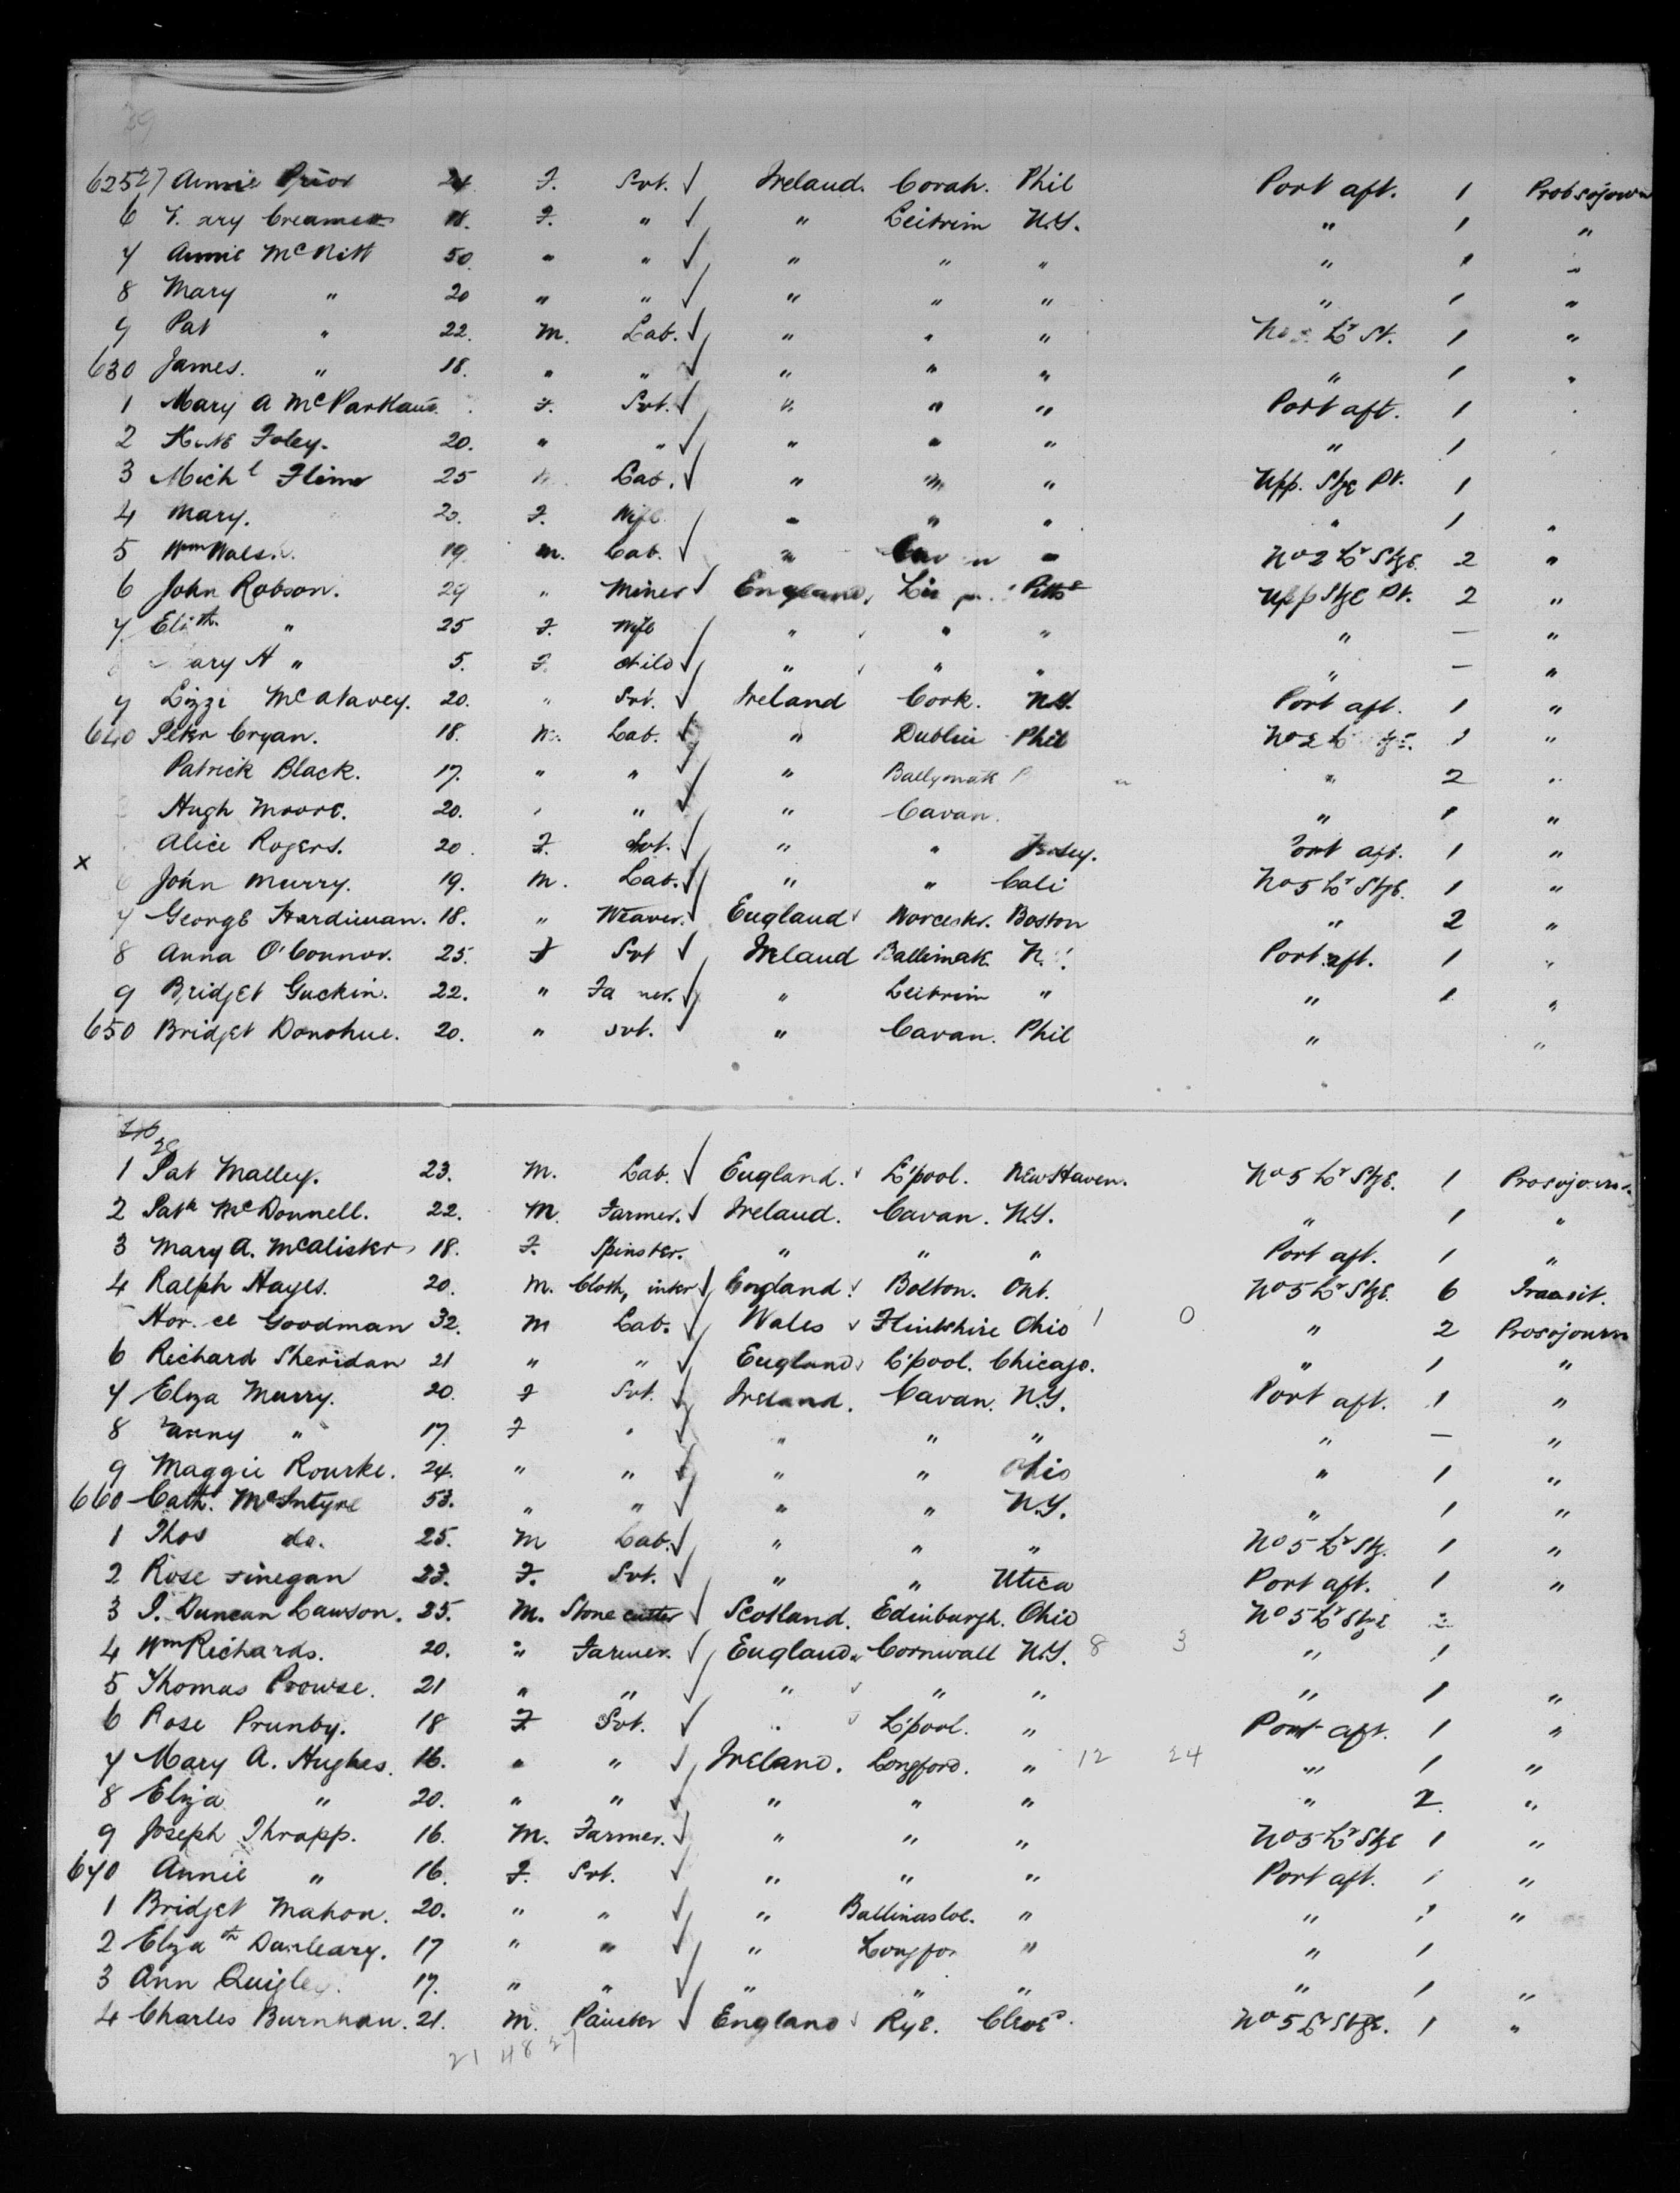 62527 Annie Prior 24 F. Svt. √ Ireland. Corah. Phil Port aft. 1 Probsojourn
6 ary Creamer 18. F. " √ " Leitrim N.Y. " 1 "
7 Annie McNitt 50. " " √ " " " " 1 "
8 Mary " 20 " " √ " " " " 1 "
9 Pat " 22. M. Lab. √ " " " No Lr St. 1 "
630 James. " 18. " " √ " " " " 1 "
1 Mary A McPartland F. Svt. √ " " " Port aft. 1
2 Kate Foley. 20. " " √ " " " " 1
3 Michl Flinn 25 Lab. √ " " " Upp. Stge Pt. 1
4 Mary. F. Wife " " " " 1 "
5 Wm Wals 19. M. Lab. √ " " No 2 Lr Stge. 2 "
6 John Robson. 29 " Miner √ England. Pitts Upp Stge Pt. 2 "
7 Elith " 25 F. Wife √ " " " " — "
ary A " 5. F. child √ " " " " — "
9 Lizzi McAtavey. 20. " Svt. √ Ireland Cork. N.Y. Port aft. 1 "
640 Peter Cryan. 18. M. Lab. √ " Dublin Phil No 2 L 1 "
Patrick Black. 17. " " √ " Ballymak P " 2 "
Hugh Moore. 20. " " √ " Cavan. " 1 "
Alice Rogers. 20. F. Svt. √ " " Jersey. Port aft. 1 "
x 6 John Murry. 19. M. Lab. √ " " Cali No 5 Lr Stge. 1 "
7 George Hardiman. 18. " Weaver. √ England √ Worcester. Boston " 2 "
8 Anna O'Connor. 25. F Svt √ Ireland Ballimak. N. Port aft. 1 "
9 Bridget Guckin. 22. " Fa mer. √ " Leitrim " " 1 "
650 Bridget Donohue. 20. " Svt. √ " Cavan. Phil " "
28
1 Pat Malley. 23. M. Lab. √ England. √ L'pool. New Haven. No 5 Lr Stge. 1 Prosojourn
2 Patk McDonnell. 22. M. Farmer. √ Ireland. Cavan. N.Y. " 1 "
3 Mary A. McAlister 18. F. Spinster. " " " Port aft. 1 "
4 Ralph Hayes. 20. M. Cloth, inter √ England √ Bolton. Ont. No 5 Lr Stge. 6 Transit.
Hor. ce Goodman 32. M Lab. √ Wales √ Flintshire Ohio 1 0 " 2 Prosojourn
6 Richard Sheridan 21 " " √ England √ L'pool. Chicago. " 1 "
7 Eliza Murry. 20. F Svt. √ Ireland. Cavan. N.Y. Port aft. 1 "
8 anny " 17. F " √ " " " " — "
9 Maggie Rourke. 24. " " √ " " Ohio " 1 "
660 Cath. McIntyre 53. " " √ " " N.Y. " 1 "
1 Thos do. 25. M Lab. √ " " " No 5 Lr Stg. 1 "
2 Rose Finegan 23. F. Svt. √ " " Utica Port aft. 1 "
3 J. Duncan Lawson. 25. M. Stone cutter √ Scotland. Edinburgh. Ohio No 5 Lr Stge
4 Wm Richards. 20. " Farmer. √ England √ Cornwall N.Y. 8 3 " 1
5 Thomas Prowse. 21 " " √ " √ " " " 1 "
6 Rose Prunby. 18 F. Svt. √ " √ L'pool. " Port aft. 1 "
7 Mary A. Hughes. 16. " " √ Ireland. Longford. " 12 24 " 1 "
8 Eliza " 20. " " √ " " " " 2 "
9 Joseph Thrapp. 16. M. Farmer. √ " " " No 5 Lr Stge 1 "
670 Annie " 16. F. Svt. √ " " " Port aft. 1 "
1 Bridget Mahon. 20. " " √ " Ballinasloe. " " 1 "
2 Elizath Dunleary. 17 " " √ " Longfor " " 1
3 Ann Quigley. 17. " " √ " " " " 1 "
4 Charles Burnham. 21. M. Painter √ England √ Rye. Cleved. No 5 Lr Stge. 1 "
21 48 27